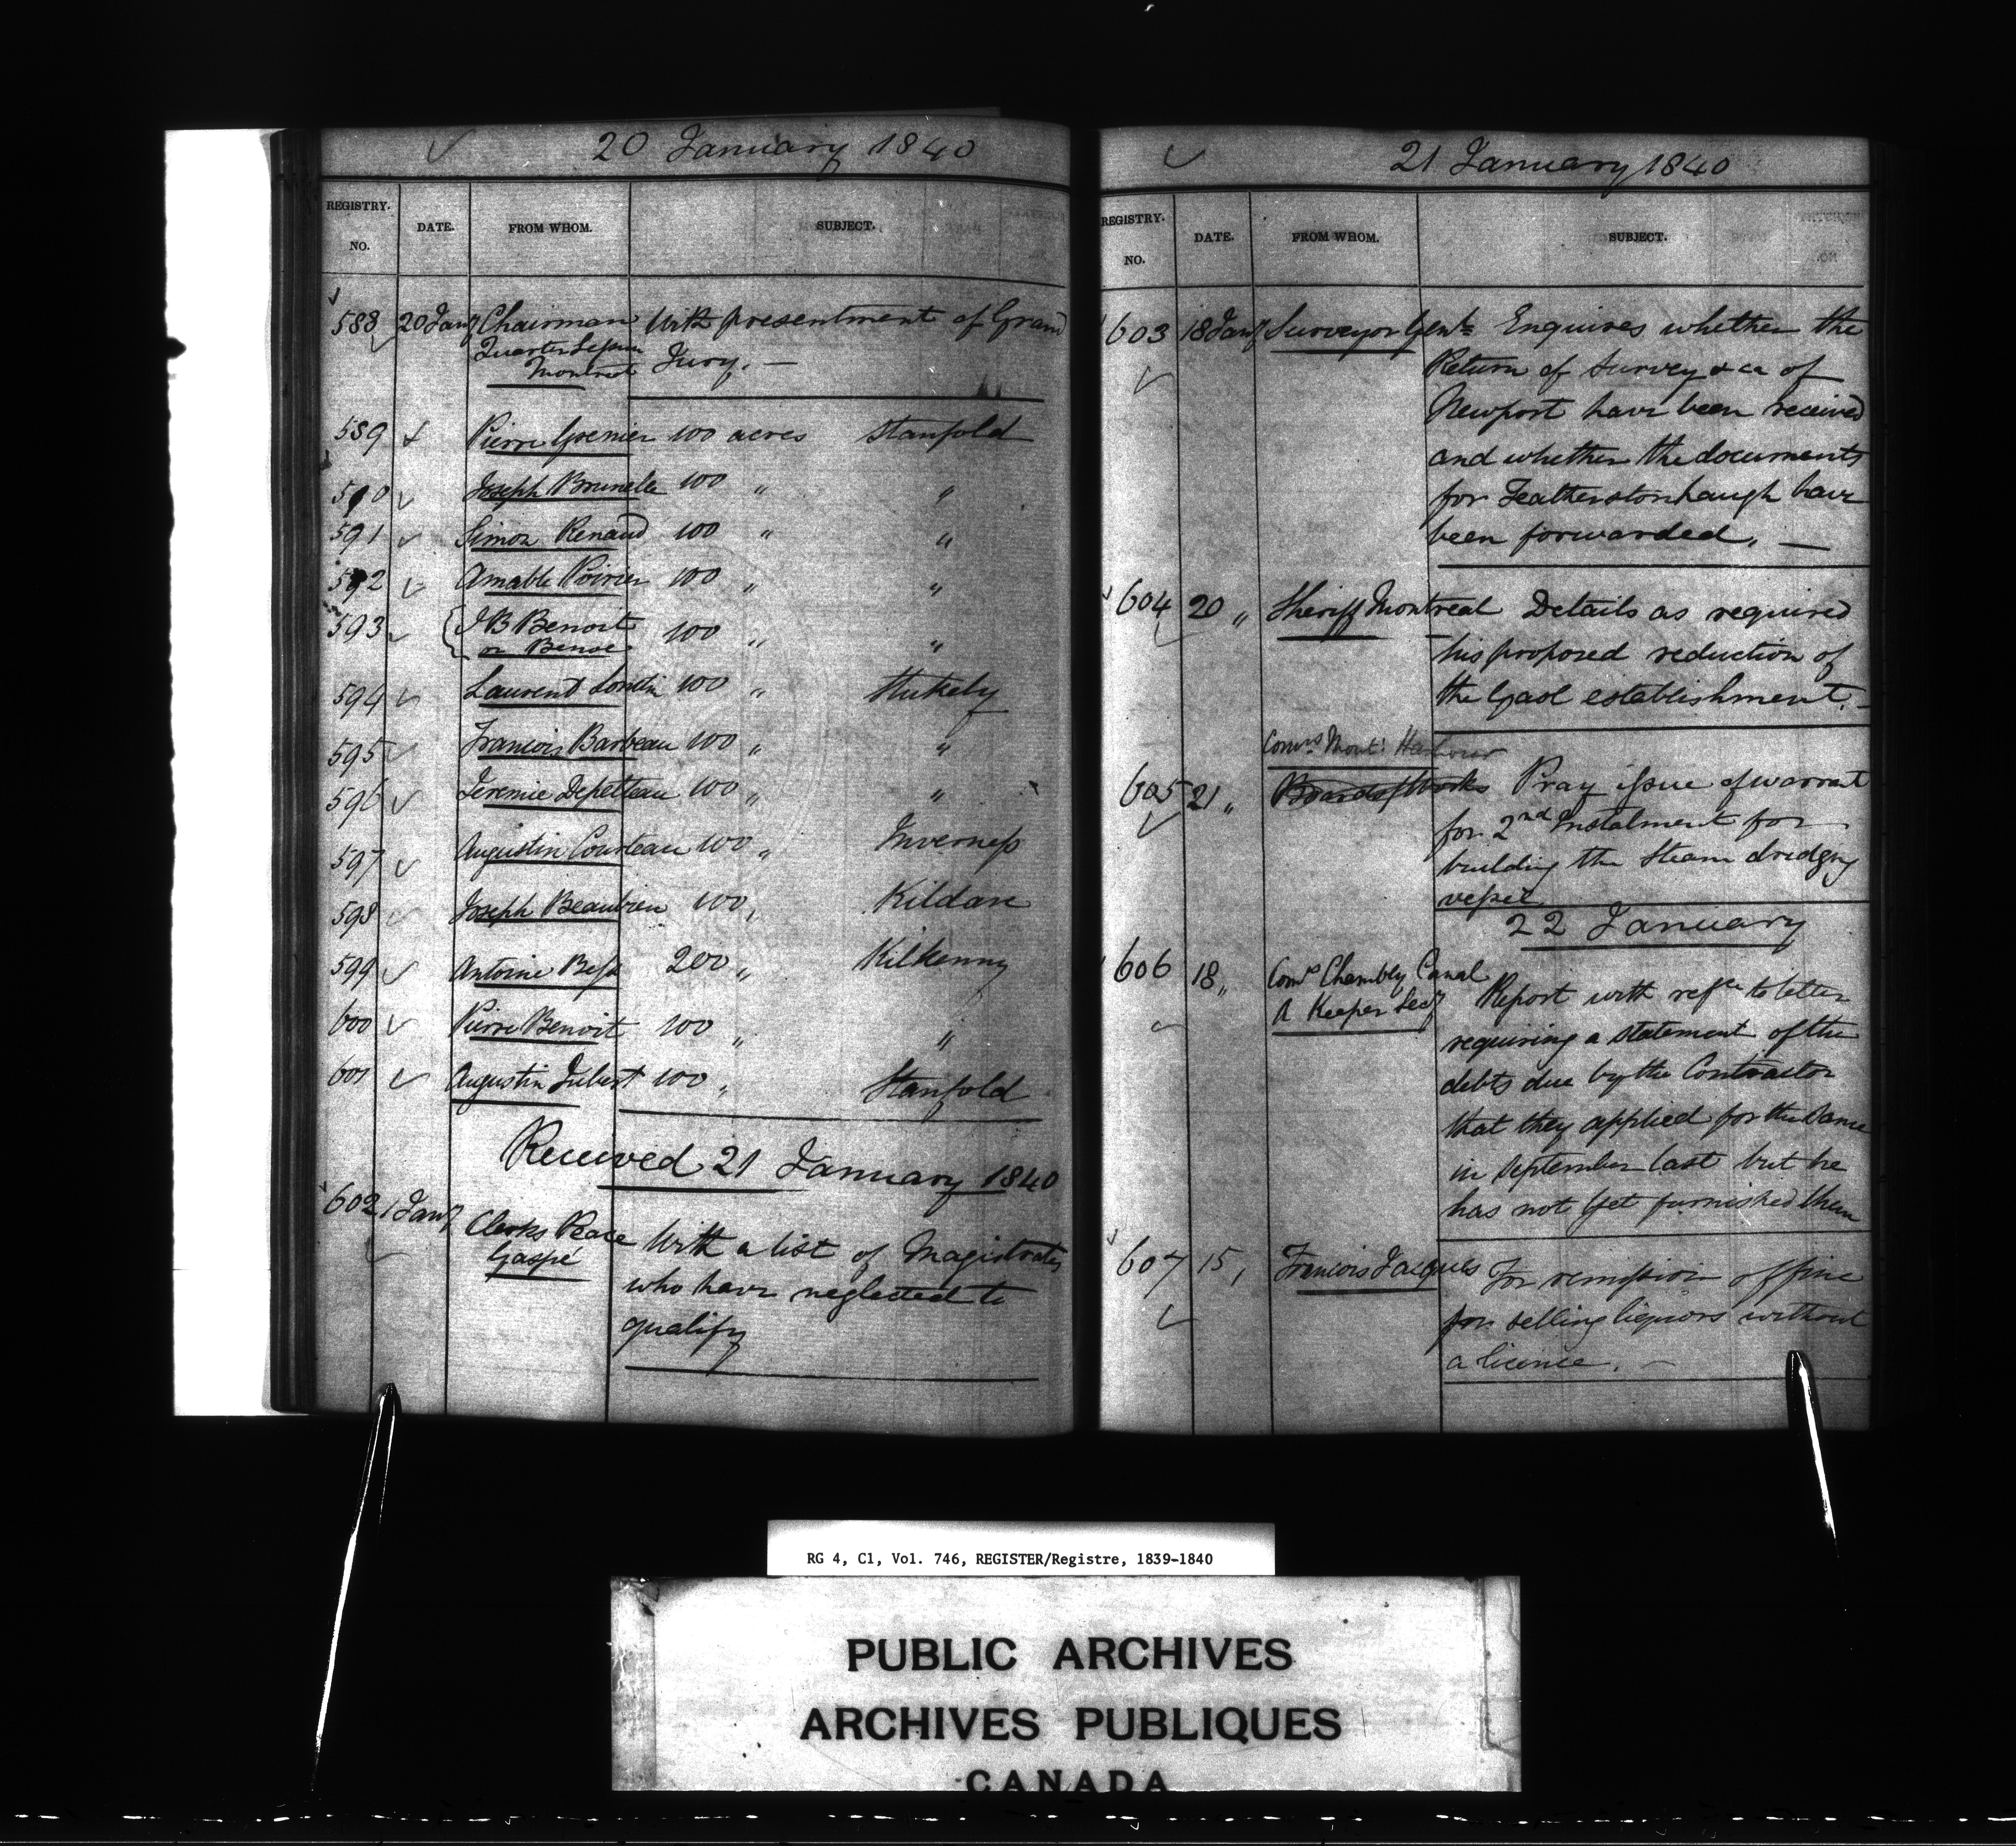 20 January 1840
REGISTRY. NO. DATE. FROM WHOM. SUBJECT.
588 20 Jany Chairman With presentment of Grand
Quarter Session Jury. —
Montreal
589 Pierre Grenier 100 acres Stanfold
590 Joseph Brunelle 100 " "
591 Simon Renaud 100 " "
592 Amable Poirier 100 " "
593 J B Benoit 100 " "
or Benoe
594 Laurent 100 " Stukely
595 Francois Barbeau 100 " "
596 Jeremie Depelteau 100 " "
597 Augustin Courteau 100 " Inverness
598 Joseph Beaubien 100 " Kildare
599 Antoine 200 " Kilkenny
600 Pierre Benoit 100 " "
601 Augustin Jubert 100 " Stanfold
Received 21 January 1840
602 1 Jany Clerks Peace With a list of Magistrates
Gaspé who have neglected to
qualify
21 January 1840
REGISTRY. NO. DATE. FROM WHOM. SUBJECT.
603 18 Jany Surveyor Genl. Enquires whether the
Return of Survey &ca of
Newport have been received
and whether the documents
for Featherstonhaugh have
been forwarded. —
604 20 " Sheriff Montreal Details as required
his proposed reduction of
the Gaol establishment. —
Comrs Mont: Harbour
605 21 " Board of Works Pray issue of warrant
for 2nd Instalment for
building the Steam dredging
vessel
22 January
606 18 " Comrs Chambly Canal
A Keeper Secy Report with refce to letter
requiring a statement of the
debts due by the Contractor
that they applied for the same
in September last but he
has not yet furnished them
607 15 " Francois Jacques For remission of fine
for selling liquors without
a licence. —
RG 4, C1, Vol. 746, REGISTER/Registre, 1839-1840
PUBLIC ARCHIVES
ARCHIVES PUBLIQUES
CANADA